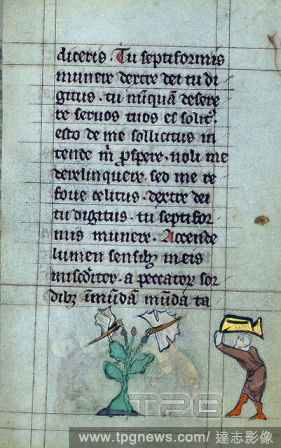 diceris. Tu septiformis
munere dextre dei tu di
gitus. tu nūquā desere
re seruos tuos es solit9.
esto de me sollicitus in
tende m̄ prospere. noli me
derelinquere sed me re
foue celitus. dextre dei
tu digitus. tu septifor
mis munere. Accende
lumen sensibȝ meis
a peccator sor
dibȝ mūda ta
TPG
www.tpgnews.com / 達志影像